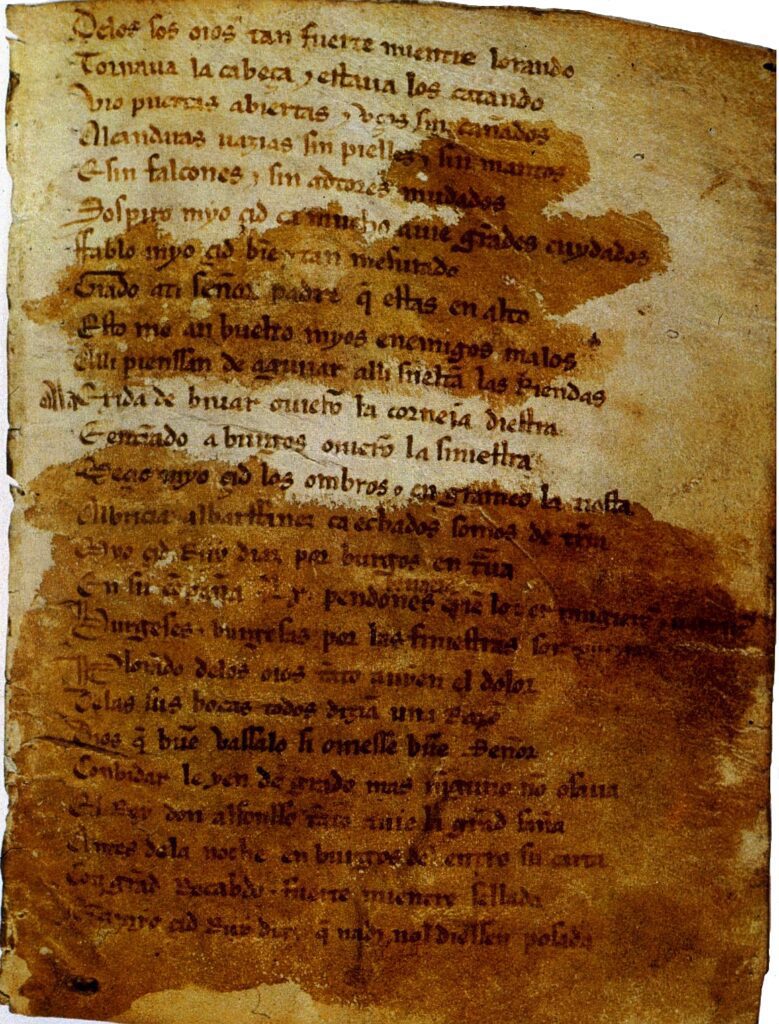 Delos sos oios tan fuerte mientre lorando
Tornaua la cabeça ⁊ estaua los catando
Vio puertas abiertas ⁊ vços sin cañados
Alcandaras uazias sin pielles ⁊ sin mantos
E sin falcones ⁊ sin adtores mudados
Sospiro myo çid ca mucho auie grãdes cuydados
Ffablo myo çid biẽ ⁊ tan mesurado
Grado ati señor padre q̃ estas en alto
Esto me an buelto myos enemigos malos
Alli pienssan de aguiiar alli sueltã las Riendas
Ala Exida de biuar ouierõ la corneia diestra
E entrãdo a burgos ouierõ la siniestra
Meçio myo çid los ombros ⁊ en grameo la tiesta
Albricia albarffanez ca echados somos de tr̃ra
Myo çid Ruy diaz por burgos en trãua
En su cõpaña .Lx. pendones
Burgeses ⁊ burgesas por las finiestras son
Plorãdo delos oios tãto auyen el dolor
Delas sus bocas todos dizian una Razõ
Dios q̃ buẽ vassalo si ouiesse buẽ Señor
Conbidar le yen de grado mas ninguno nõ osaua
El Rey don alfonsso tãto auie la grãd saña
Antes dela noche en burgos del entro su carta
Con grãd Recabdo ⁊ fuerte mientre sellada
çid Ruy diaz q̃ nadi nol diessen posada